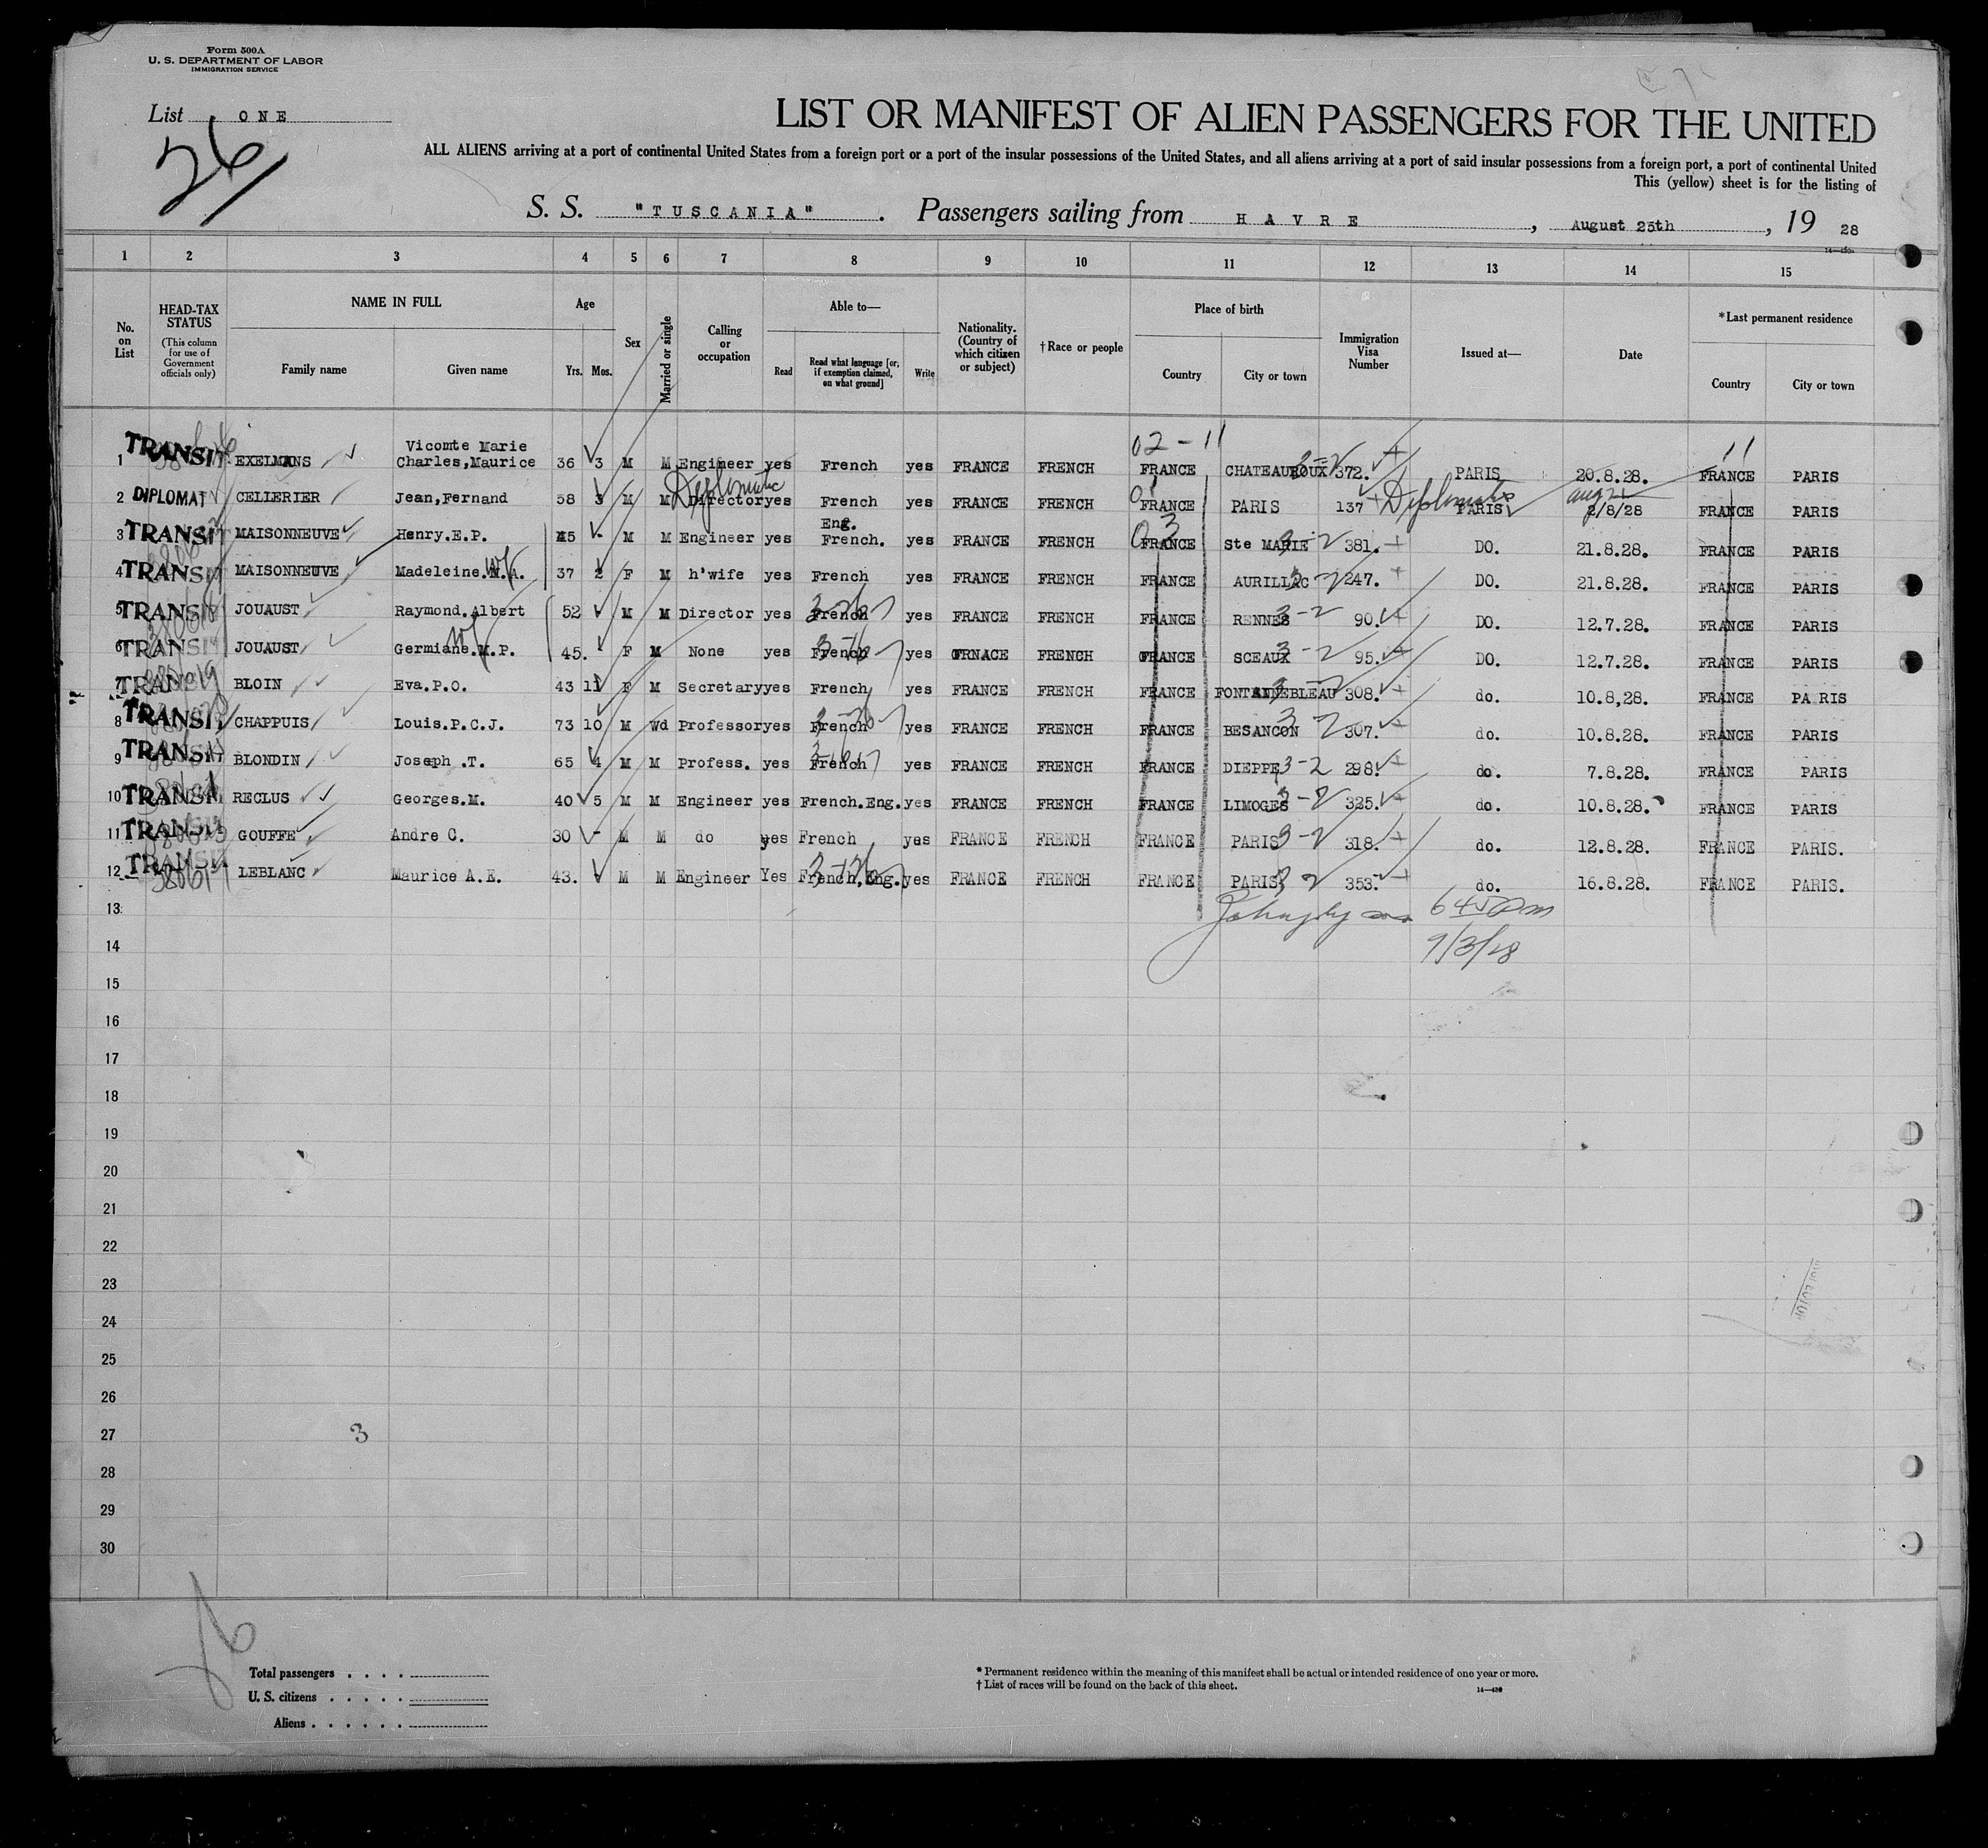 Form 500A
U. S. DEPARTMENT OF LABOR
IMMIGRATION SERVICE
List ONE
26
LIST OR MANIFEST OF ALIEN PASSENGERS FOR THE UNITED
ALL ALIENS arriving at a port of continental United States from a foreign port or a port of the insular possessions of the United States, and all aliens arriving at a port of said insular possessions from a foreign port, a port of continental United
This (yellow) sheet is for the listing of
S. S. "TUSCANIA". Passengers sailing from HAVRE, August 25th, 19 28
1 2 3 4 5 6 7 8 9 10 11 12 13 14 15
No. on List
HEAD-TAX STATUS (This column for use of Government officials only)
NAME IN FULL
Family name Given name
Age
Yrs. Mos.
Sex
Married or single
Calling or occupation
Able to—
Read
Read what language [or, if exemption claimed, on what ground]
Write
Nationality. (Country of which citizen or subject)
†Race or people
Place of birth
Country City or town
Immigration Visa Number
Issued at—
Date
*Last permanent residence
Country City or town
02-11 11
1 TRANSIT EXELMANS Vicomte Marie Charles,Maurice 36 3 M M Engineer yes French yes FRANCE FRENCH FRANCE CHATEAUROUX 372. PARIS 20.8.28. FRANCE PARIS
2 DIPLOMAT CELLERIER Jean,Fernand 58 3 M M Diplomatic Director yes French yes FRANCE FRENCH FRANCE PARIS 137 Diplomatic PARIS Aug 21 2/8/28 FRANCE PARIS
3 TRANSIT MAISONNEUVE Henry.E.P. 45 - M M Engineer yes Eng. French. yes FRANCE FRENCH 03 FRANCE Ste MARIE 3-2 381. DO. 21.8.28. FRANCE PARIS
4 TRANSIT MAISONNEUVE Madeleine.M.A. wf 37 2 F M h'wife yes French yes FRANCE FRENCH FRANCE AURILLAC 3-2 247. DO. 21.8.28. FRANCE PARIS
5 TRANSIT JOUAUST Raymond.Albert 52 M M Director yes French yes FRANCE FRENCH FRANCE RENNES 3-2 90. DO. 12.7.28. FRANCE PARIS
6 TRANSIT JOUAUST Germiane.M.P. wf 45. F M None yes French yes FRNACE FRENCH FRANCE SCEAUX 3-2 95. DO. 12.7.28. FRANCE PARIS
7 TRANSIT BLOIN Eva.P.O. 43 11 F M Secretary yes French yes FRANCE FRENCH FRANCE FONTAINEBLEAU 308. do. 10.8,28. FRANCE PA RIS
8 TRANSIT CHAPPUIS Louis.P.C.J. 73 10 M Wd Professor yes French yes FRANCE FRENCH FRANCE BESANCON 3-2 307. do. 10.8.28. FRANCE PARIS
9 TRANSIT BLONDIN Joseph .T. 65 4 M M Profess. yes French yes FRANCE FRENCH FRANCE DIEPPE 3-2 298. do. 7.8.28. FRANCE PARIS
10 TRANSIT RECLUS Georges.M. 40 5 M M Engineer yes French.Eng. yes FRANCE FRENCH FRANCE LIMOGES 3-2 325. do. 10.8.28. FRANCE PARIS
11 TRANSIT GOUFFE Andre C. 30 - M M do yes French yes FRANCE FRENCH FRANCE PARIS 3-2 318. do. 12.8.28. FRANCE PARIS.
12 TRANSIT LEBLANC Maurice A.E. 43. M M Engineer Yes French,Eng. yes FRANCE FRENCH FRANCE PARIS 353. do. 16.8.28. FRANCE PARIS.
13 645 pm
14 9/3/28
15
16
17
18
19
20
21
22
23
24
25
26
27 3
28
29
30
26
Total passengers . . . .
U. S. citizens . . . . .
Aliens . . . . . .
* Permanent residence within the meaning of this manifest shall be actual or intended residence of one year or more.
† List of races will be found on the back of this sheet.
14—430